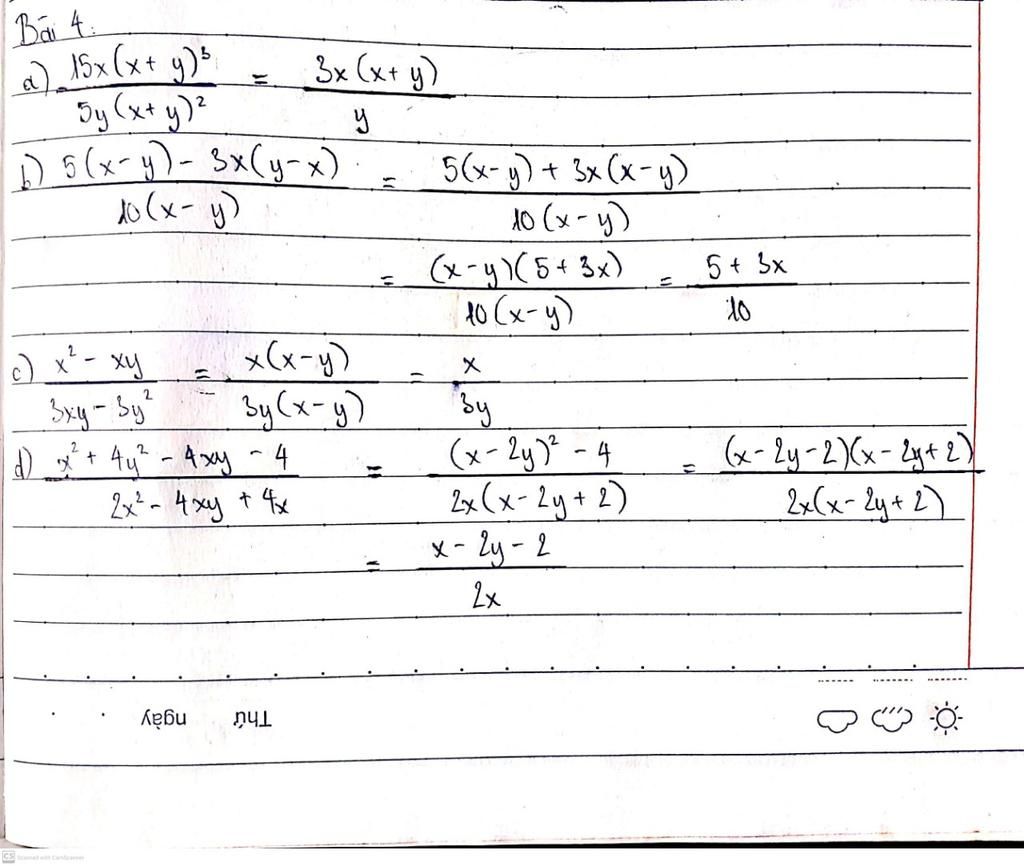 Bài 4:
a) 15x(x + y)³ / 5y(x + y)² = 3x(x + y) / y
b) 5(x - y) - 3x(y - x) / 10(x - y) = 5(x - y) + 3x(x - y) / 10(x - y)
= (x - y)(5 + 3x) / 10(x - y) = 5 + 3x / 10
c) x² - xy / 3xy - 3y² = x(x - y) / 3y(x - y) = x / 3y
d) x² + 4y² - 4xy - 4 / 2x² - 4xy + 4x = (x - 2y)² - 4 / 2x(x - 2y + 2) = (x - 2y - 2)(x - 2y + 2) / 2x(x - 2y + 2)
= x - 2y - 2 / 2x
Thứ ngày
CS Scanned with CamScanner